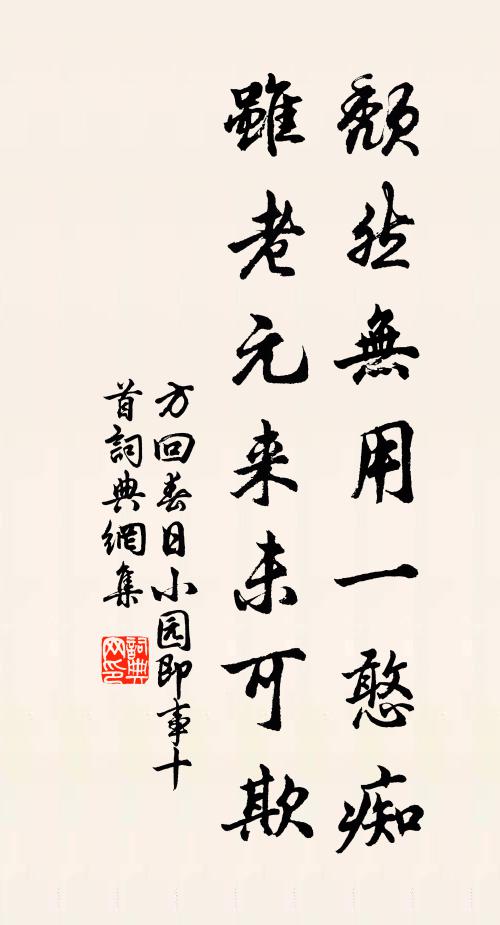 頹然無用一憨痴
雖老元来未可欺
方回春日小园即事十
首詞典網集
詞典
网印